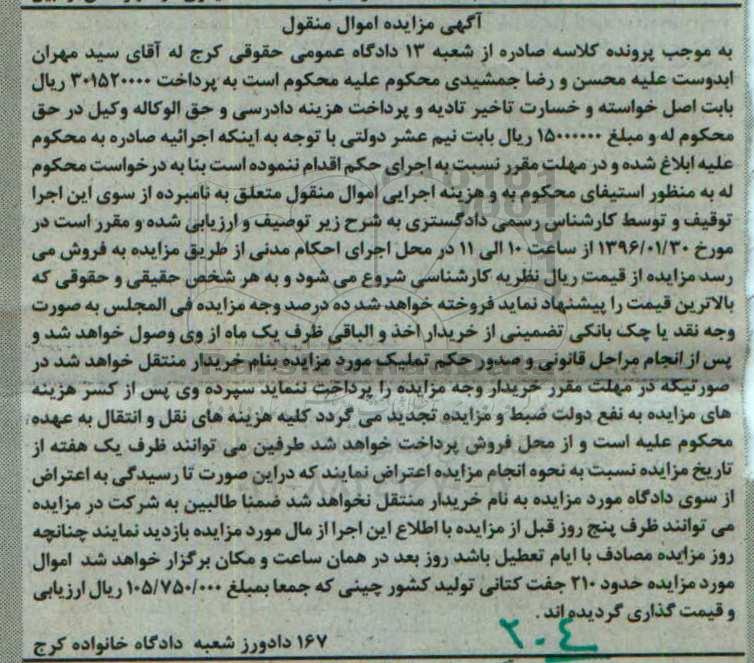 آگهی مزایده اموال منقول
به موجب پرونده کلاسه صادره از شعبه ۱۳ دادگاه عمومی حقوقی کرج له آقای سید مهران
ایدوست علیه محسن و رضا جمشیدی محکوم علیه محکوم است به پرداخت ۳۰۱۵۲۰۰۰۰ ریال
بابت اصل خواسته و خسارت تاخیر تادیه و پرداخت هزینه دادرسی و حق الوکاله وکیل در حق
محکوم له و مبلغ ۱۵۰۰۰۰۰۰ ریال بابت نیم عشر دولتی با توجه به اینکه اجرائیه صادره به محکوم
علیه ابلاغ شده و در مهلت مقرر نسبت به اجرای حکم اقدام ننموده است بنا به درخواست محکوم
له به منظور استیفای محکوم به و هزینه اجرایی اموال منقول متعلق به نامبرده از سوی این اجرا
توقیف و توسط کارشناس رسمی دادگستری به شرح زیر توصیف و ارزیابی شده و مقرر است در
مورخ ۱۳۹۶/۰۱/۳۰ از ساعت ۱۰ الی ۱۱ در محل اجرای احکام مدنی از طریق مزایده به فروش می
رسد مزایده از قیمت ریال نظریه کارشناسی شروع می شود و به هر شخص حقیقی و حقوقی که
بالاترین قیمت را پیشنهاد نماید فروخته خواهد شد ده درصد وجه مزایده فی المجلس به صورت
وجه نقد یا چک بانکی تضمینی از خریدار اخذ و الباقی ظرف یک ماه از وی وصول خواهد شد و
پس از انجام مراحل قانونی و صدور حکم تملیک مورد مزایده بنام خریدار منتقل خواهد شد در
صورتیکه در مهلت مقرر خریدار وجه مزایده را پرداخت ننماید سپرده وی پس از کسر هزینه
های مزایده به نفع دولت ضبط و مزایده تجدید می گردد کلیه هزینه های نقل و انتقال به عهده
محکوم علیه است و از محل فروش پرداخت خواهد شد طرفین می توانند ظرف یک هفته از
تاریخ مزایده نسبت به نحوه انجام مزایده اعتراض نمایند که دراین صورت تا رسیدگی به اعتراض
از سوی دادگاه مورد مزایده به نام خریدار منتقل نخواهد شد ضمنا طالبین به شرکت در مزایده
می توانند ظرف پنج روز قبل از مزایده با اطلاع این اجرا از مال مورد مزایده بازدید نمایند چنانچه
روز مزایده مصادف با ایام تعطیل باشد روز بعد در همان ساعت و مکان برگزار خواهد شد اموال
مورد مزایده حدود ۲۱۰ جفت کتانی تولید کشور چینی که جمعا بمبلغ ۱۰۵/۷۵۰/۰۰۰ ریال ارزیابی
و قیمت گذاری گردیده اند.
۲۰٤
۱۶۷ دادورز شعبه دادگاه خانواده کرج